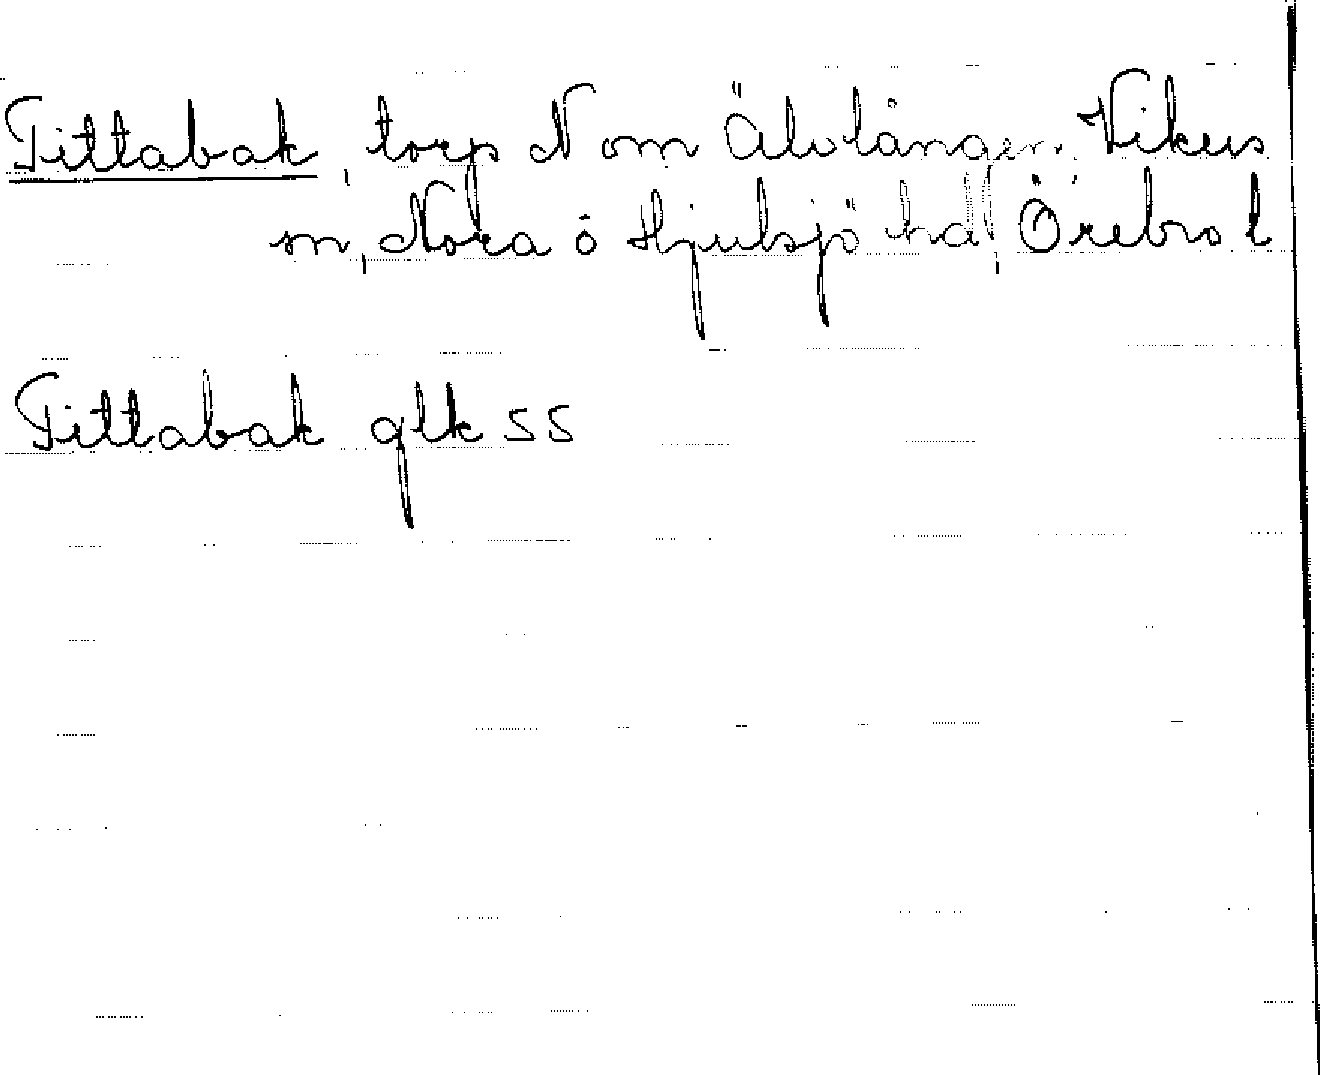 Tittabak, torp N om Älvlången, Vikers
sn, Nora ò Hjulsjö hd, Örebro l
Tittabak glk 55